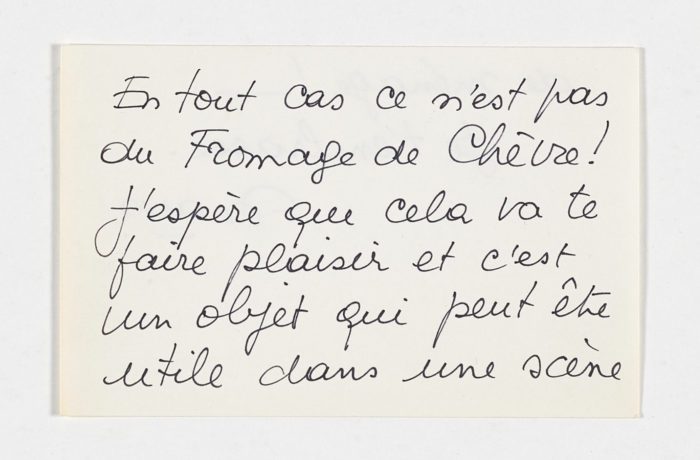 En tout cas ce n'est pas
du Fromage de Chèvre!
J'espère que cela va te
faire plaisir et c'est
un objet qui peut être
utile dans une scène